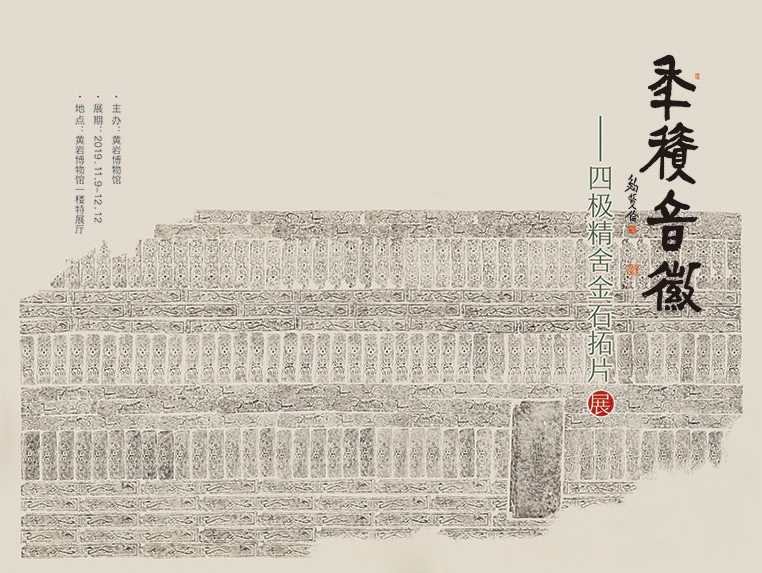 秊積音徽
——四极精舍金石拓片展
· 主办：黄岩博物馆
· 展期：2019.11.9-12.12
· 地点：黄岩博物馆一楼特展厅